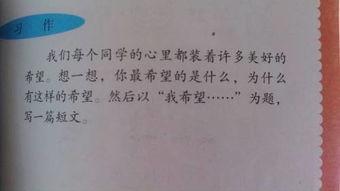 习 作
我们每个同学的心里都装着许多美好的
希望。想一想，你最希望的是什么，为什么
有这样的希望。然后以“我希望……”为题，
写一篇短文。